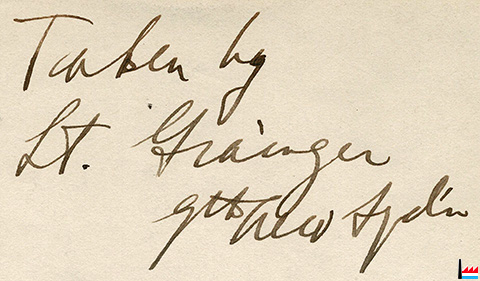 Taken by
Lt. Grainger
9th Aero Sqd'n